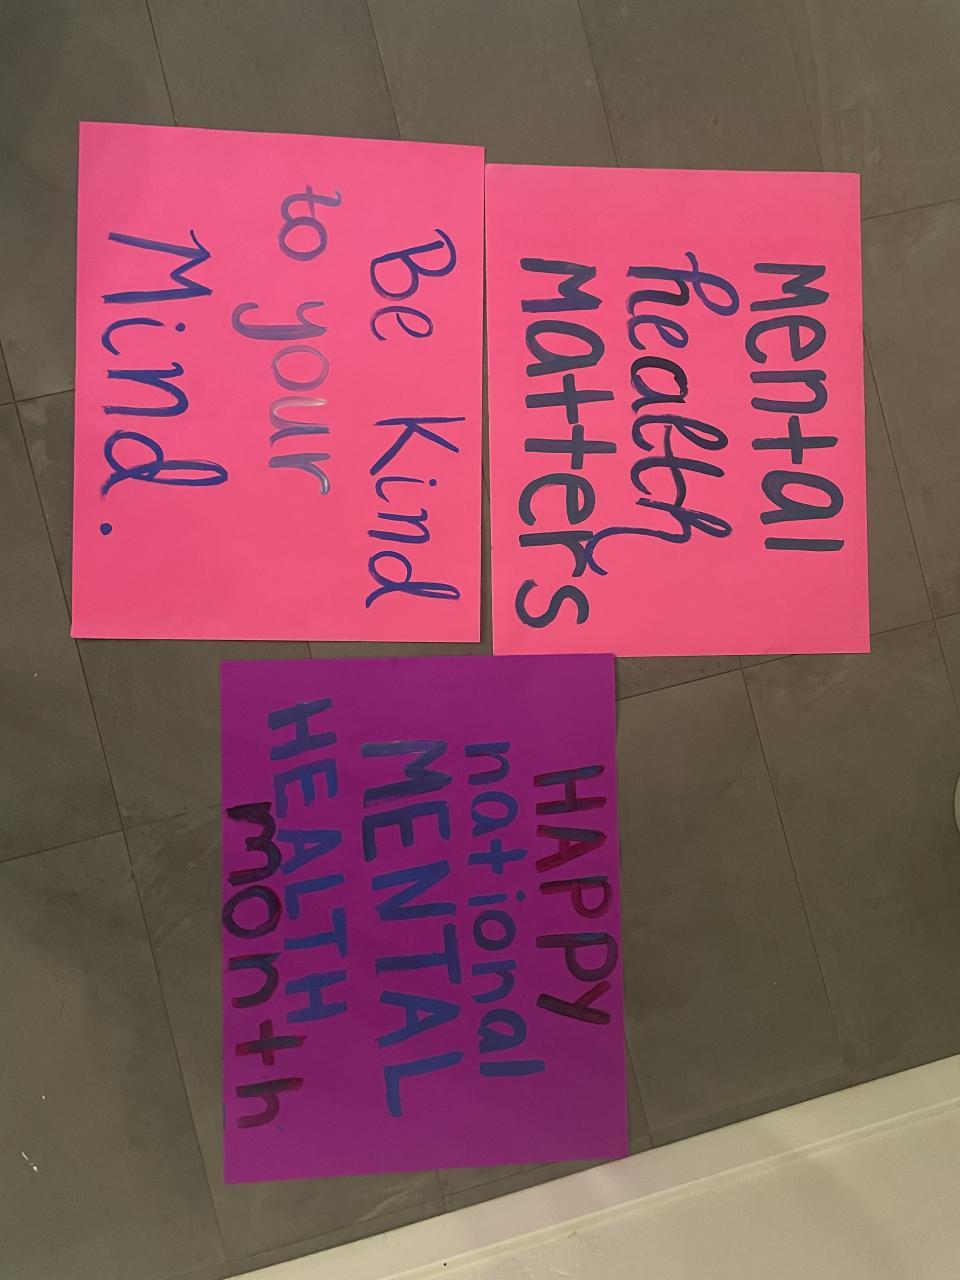 Mental
health
Matters
Be Kind
to your
Mind.
HAPPY
national
MENTAL
HEALTH
month